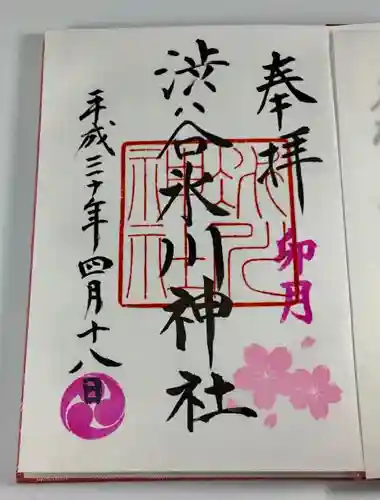 奉拝
卯月
渋谷氷川神社
平成三十年四月十八日
氷川
神社